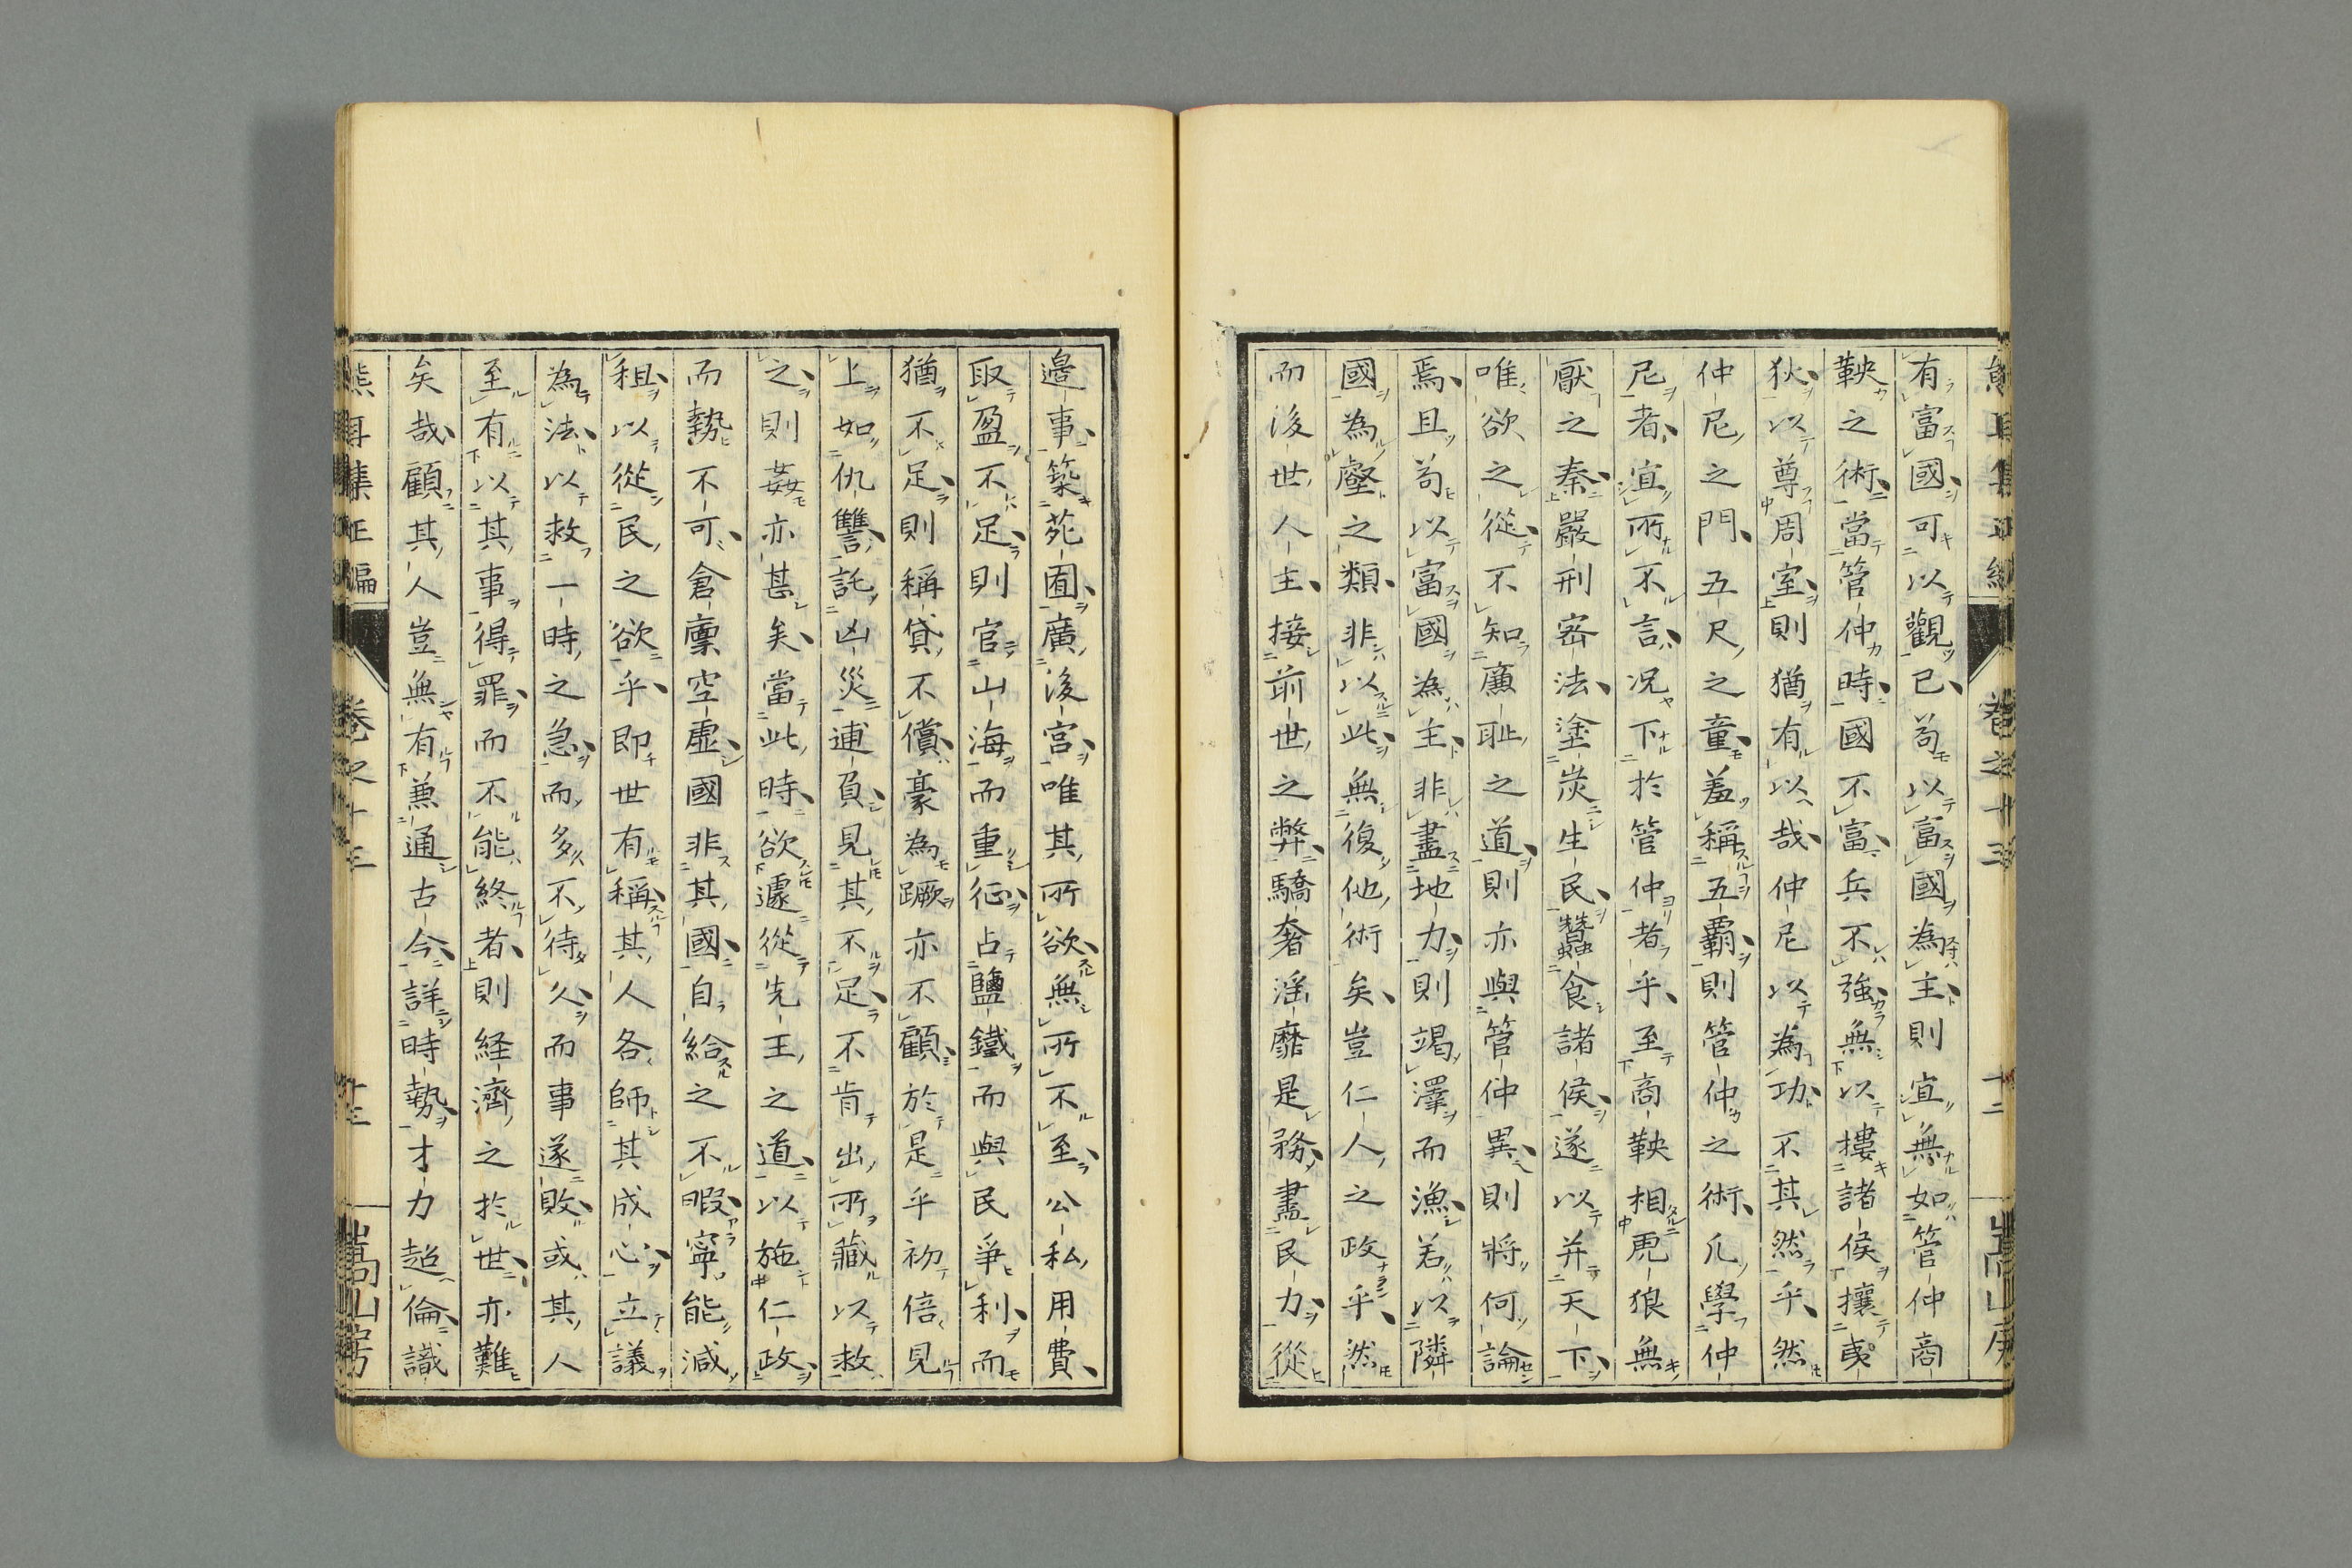 有富國可以觀已苟以富國為主則宜無如管仲商
鞅之術當管仲時國不富兵不強無以摟諸侯攘夷
狄以尊周室則猶有以哉仲尼以為功不其然乎然
仲尼之門五尺之童羞稱五霸則管仲之術凡學仲
尼者宜所不言况下於管仲者乎至商鞅相虎狼無
厭之秦嚴刑密法塗炭生民蠶食諸侯遂以并天下
唯欲之從不知廉耻之道則亦與管仲異則將何論
焉且苟以富國為主非盡地力則竭澤而漁若以隣
國為壑之類非以此無復他術矣豈仁人之政乎然
而後世人主接前世之弊驕奢淫靡是務盡民力從
邊事築苑囿廣後宮唯其所欲無所不至公私用費
取盈不足則官山海而重征占鹽鐵而與民爭利而
猶不足則稱貸不償豪為蹶亦不顧於是乎初倍見
上如仇讐託凶災逋負見其不足不肯出所藏以救
之則姦亦甚矣當此時欲遽從先王之道以施仁政
而勢不可倉廩空虛國非其國自給之不暇寧能減
租以從民之欲乎即世有稱其人各師其成心立議
為法以救一時之急而多不待久而事遂敗或其人
至有以其事得罪而不能終者則経濟之於世亦難
矣哉顧其人豈無有兼通古今詳時勢才力超倫識
熊耳集正編 卷之十三 十三 嵩山房